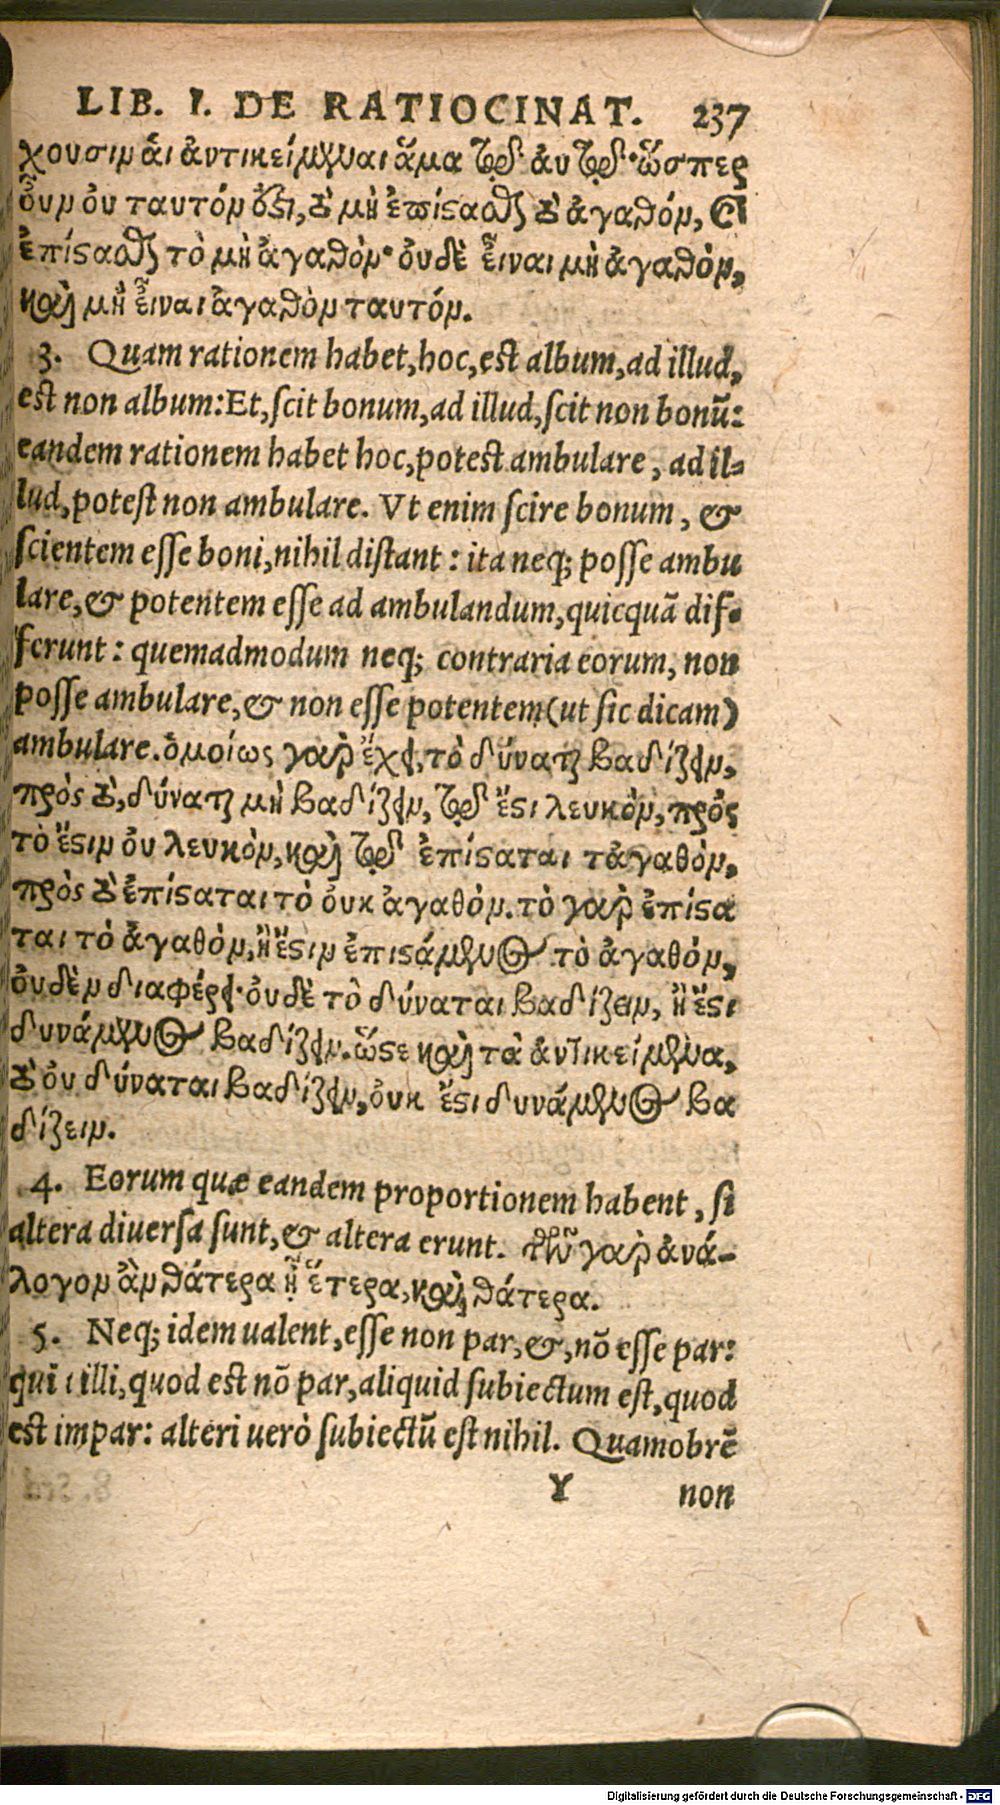 LIB. I. DE RATIOCINAT. 237
χουσιν ἁι ἀντικείμεναι ἅμα τῷ ἀυτῷ· ὥσπερ
ὀῦν ὀυ ταυτόν ὅξι, τὸ μὴ ἐπίςαθαι τὸ ἀγαθόν, καὶ
ἐπίςαθαι τὸ μὴ ἀγαθὸν· ὀυδὲ ἐῖναι μὴ ἀγαθὸν,
καὶ μὴ ἐῖναι ἀγαθὸν ταυτόν.
3. Quam rationem habet, hoc, est album, ad illud,
est non album: Et, ſcit bonum, ad illud, ſcit non bonū:
eandem rationem habet hoc, potest ambulare, ad il=
lud, poteſt non ambulare. Vt enim ſcire bonum, &
ſcientem eſſe boni, nihil diſtant: ita neq; poſſe ambu
lare, & potentem eſſe ad ambulandum, quicquā dif=
ferunt: quemadmodum neq; contraria eorum, non
poſſe ambulare, & non eſſe potentem (ut ſic dicam)
ambulare. ὁμοίως γαρ ἔχει, τὸ δύναται βαδίζειν,
πρὸς τὸ, δύναται μὴ βαδίζειν, τῷ ἔςι λευκὸν, πρὸς
τὸ ἔςιν ὀυ λευκὸν, καὶ τῷ ἐπίςαται τἀγαθὸν,
πρὸς τὸ ἐπίςαται τὸ ὀυκ ἀγαθόν. τὸ γαρ ἐπίςα
ται τὸ ἀγαθὸν, ἢ ἔςιν ἐπιςάμενος τὸ ἀγαθόν,
ὀυδὲν διαφέρει· ὀυδὲ τὸ δύναται βαδίζειν, ἢ ἔςι
δυνάμενος βαδίζειν. ὥςε καὶ τὰ ἀντικείμενα,
τὸ ὀυ δύναται βαδίζειν, ὀυκ ἔςι δυνάμενος βα
δίζειν.
4. Eorum quæ eandem proportionem habent, ſi
altera diuerſa ſunt, & altera erunt. τῶν γαρ ἀνά-
λογον ἂν θάτερα ᾖ ἕτερα, καὶ θάτερα.
5. Neq; idem ualent, eſſe non par, &, nō eſſe par:
qui illi, quod est nō par, aliquid ſubiectum eſt, quod
est impar: alteri uerò ſubiectū eſt nihil. Quamobrē
Y non
Digitalisierung gefördert durch die Deutsche Forschungsgemeinschaft - DFG